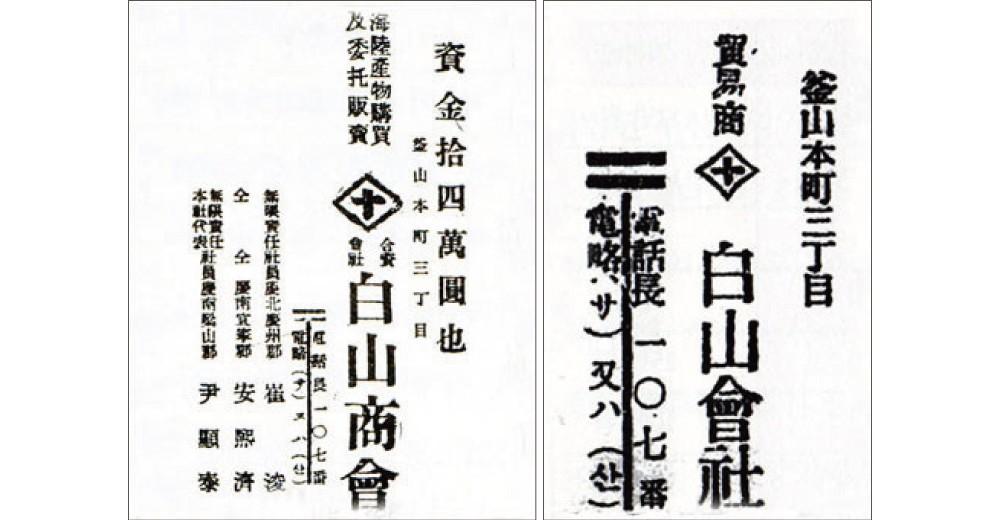 資金拾四萬圓也
釜山本町三丁目
海陸產物購買
及委托販賣
十
合資
會社
白山商會
電話長一〇七番
電略(サ)又ハ(산)
無限責任社員慶北慶州郡 崔浚
仝 仝 慶南宜寧郡 安熙濟
無限責任
本社代表
社員慶南梁山郡 尹顯泰
釜山本町三丁目
貿易商
十
白山會社
電話長一〇七番
電略(サ)又ハ(산)